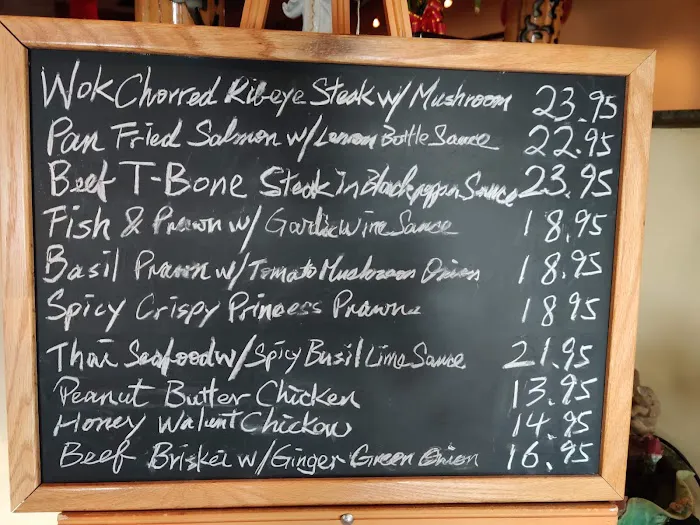 Wok Chorred Rib-eye Steak w/ Mushroom 23.95
Pan Fried Salmon w/ Lemon Bottle Sauce 22.95
Beef T-Bone Steak In Black pepper Sauce 23.95
Fish & Prawn w/ Garlic Wine Sauce 18.95
Basil Prawn w/ Tomato Mushroom Onion 18.95
Spicy Crispy Princess Prawn 18 95
Thai Seafood w/ Spicy Basil Lime Sauce 21.95
Peanut Butter Chicken 13.95
Honey Walnut Chicken 14.95
Beef Brisket w/ Ginger Green Onion 16.95